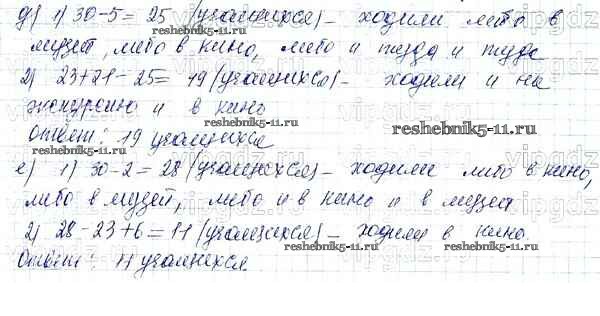 д) 1) 30-5 = 25 (учащихся) - ходили либо в
музей, либо в кино, либо и туда и туда
2) 23+21-25= 19 (учащихся) - ходили и на
экскурсию и в кино
Ответ: 19 учащихся
е) 1) 30-2 = 28 (учащихся) - ходили либо в кино,
либо в музей, либо и в кино и в музей
2) 28-23+6 = 11 (учащихся) - ходили в кино.
Ответ: 11 учащихся
reshebnik5-11.ru
reshebnik5-11.ru
reshebnik5-11.ru
reshebnik5-11.ru
reshebnik5-11.ru
vipgdz.ru